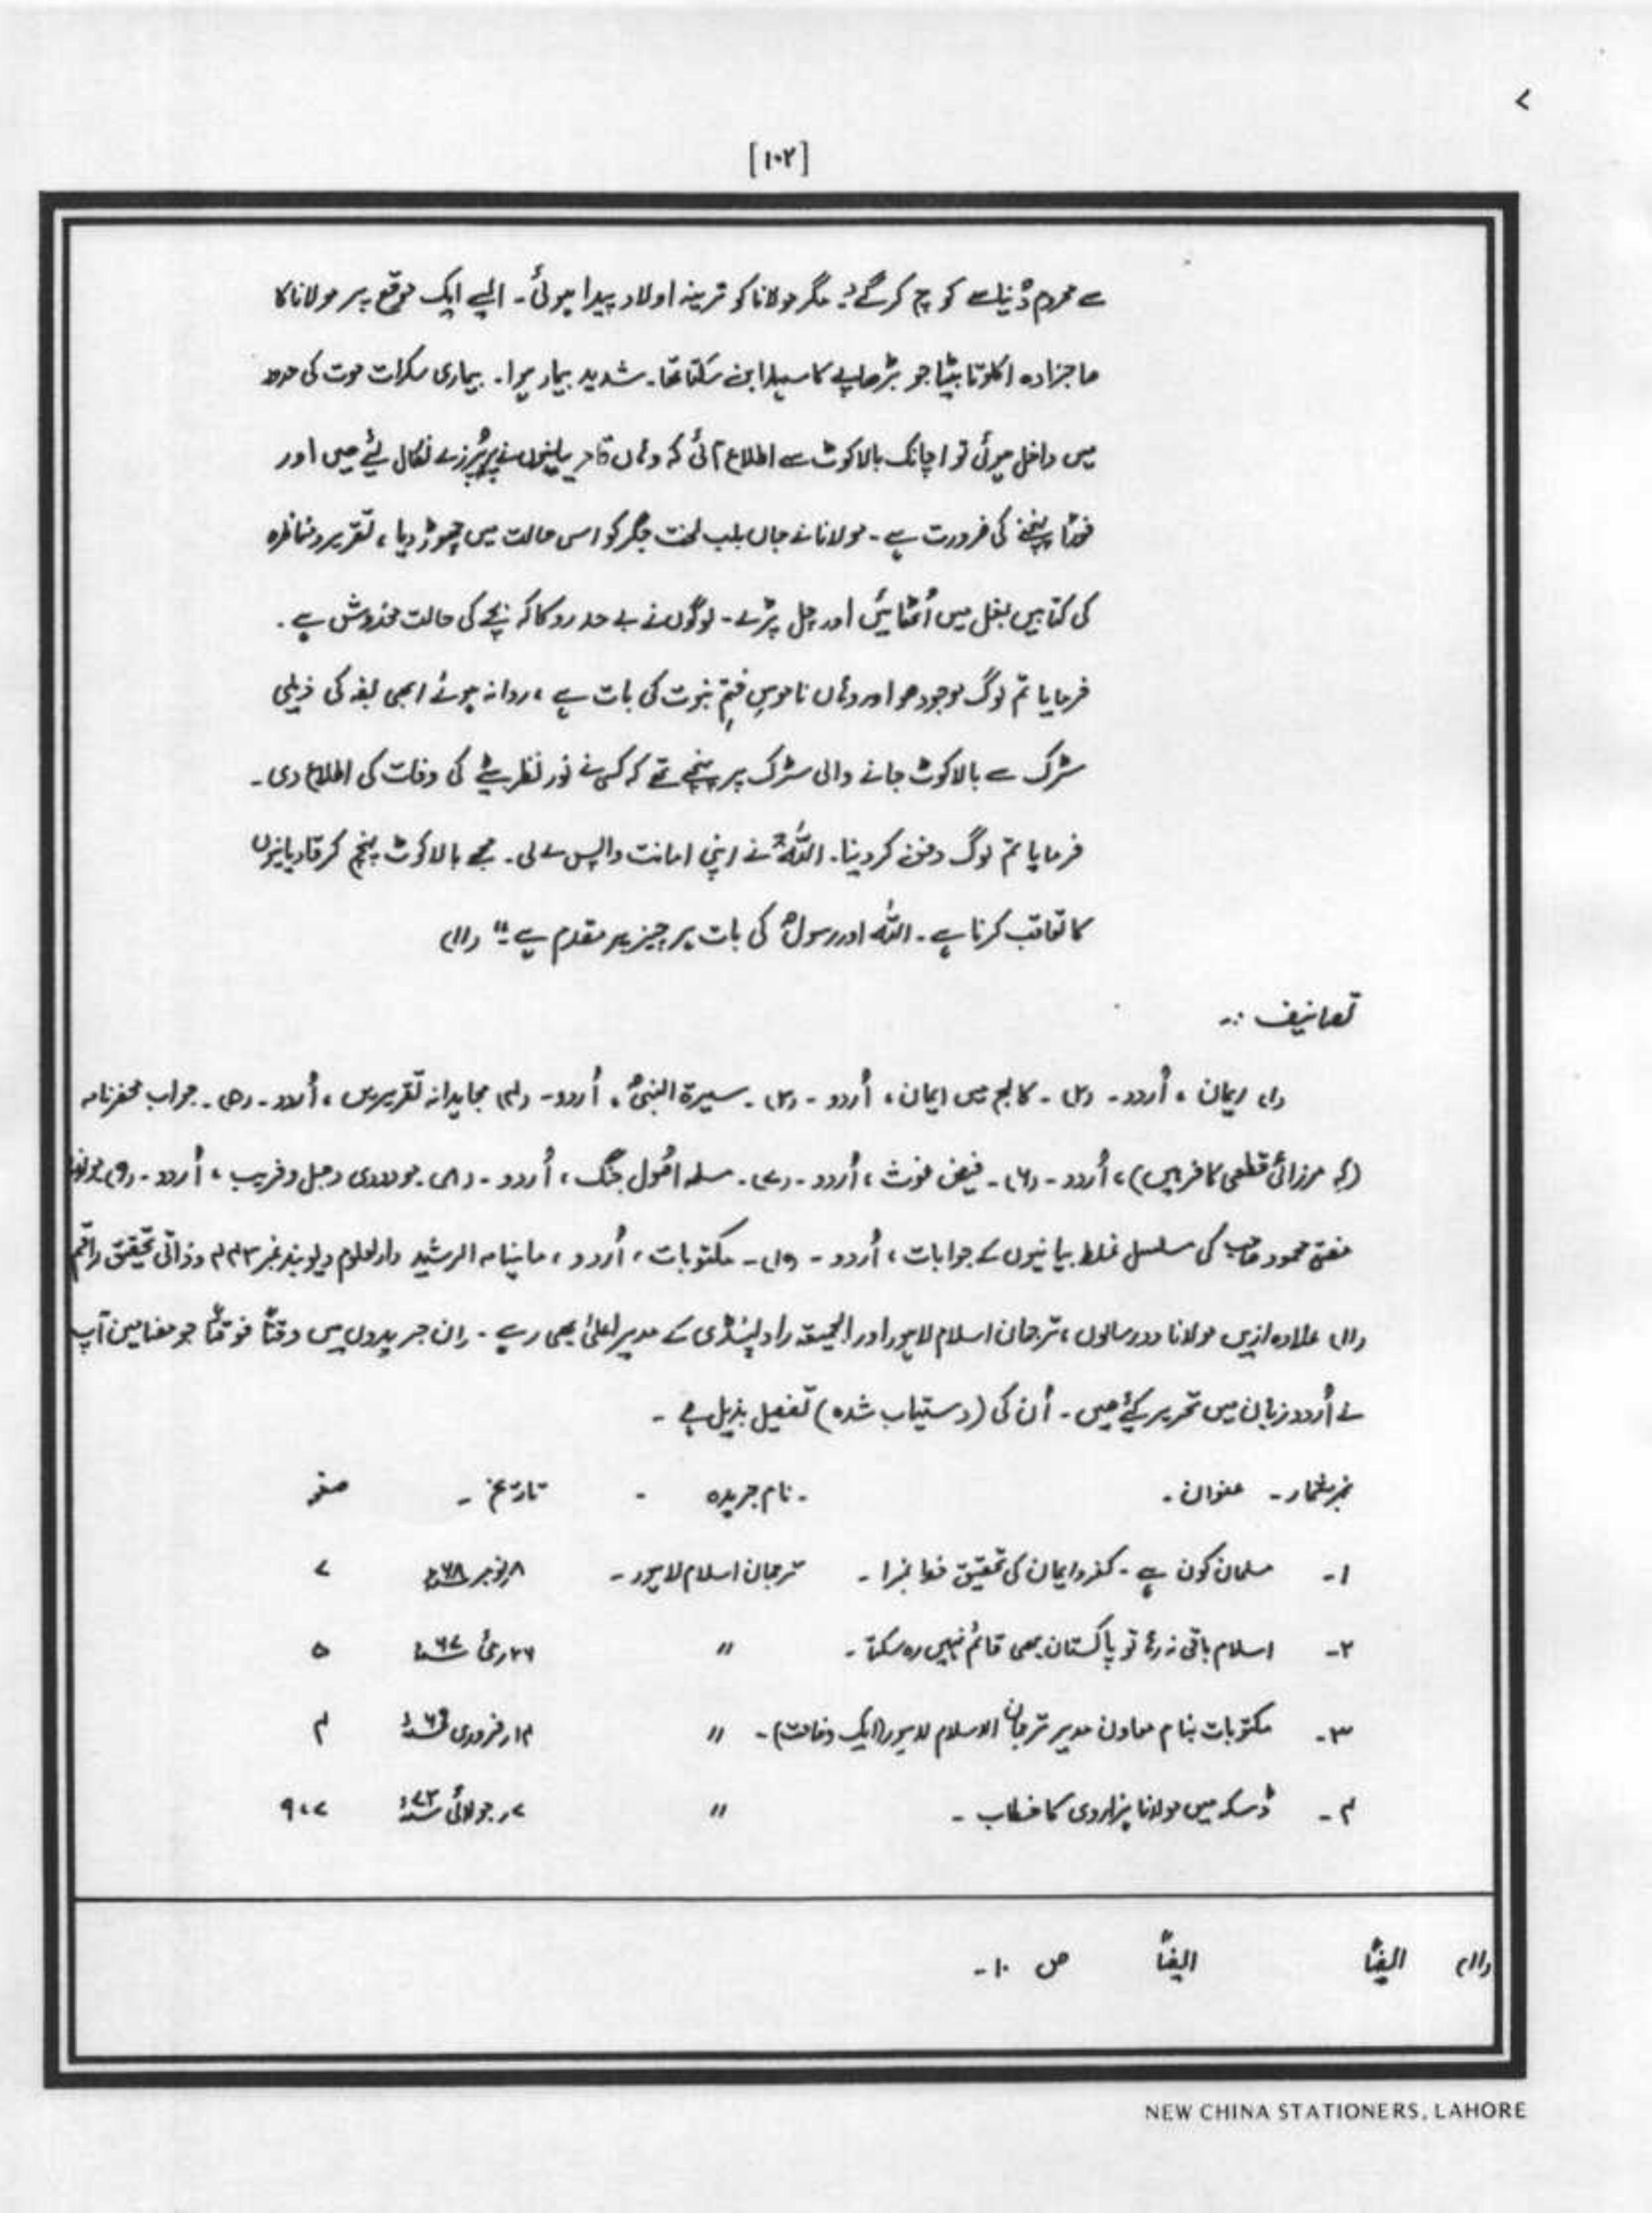 ۷
[۱۰۲]
سے محروم دُنیا سے کوچ کر گئے؛ مگر مولانا کو نرینہ اولاد پیدا ہوئی۔ ایسے ایک موقع پر مولانا کا
صاحبزادہ اکلوتا بیٹا جو بڑھاپے کا سہارا بن سکتا تھا۔ شدید بیمار ہوا۔ بیماری سکرات موت کی حدود
میں داخل ہوئی تو اچانک بالاکوٹ سے اطلاع آئی کہ وہاں قادیانیوں نے پر پُرزے نکال لئے ہیں اور
فوراً پہنچنے کی ضرورت ہے۔ مولانا نے جاں بلب لخت جگر کو اسی حالت میں چھوڑ دیا، تقریر و مناظرہ
کی کتابیں بغل میں اُٹھائیں اور چل پڑے۔ لوگوں نے بے حد روکا کہ بچے کی حالت مخدوش ہے۔
فرمایا تم لوگ موجود ہو اور وہاں ناموسِ ختمِ نبوت کی بات ہے، روانہ ہوئے ابھی بفہ کی ذیلی
سڑک سے بالاکوٹ جانے والی سڑک پر پہنچے تھے کہ کسی نے نور نظر بیٹے کی وفات کی اطلاع دی۔
فرمایا تم لوگ دفن کر دینا۔ اللہ نے اپنی امانت واپس لے لی۔ مجھے بالاکوٹ پہنچ کر قادیانیوں
کا تعاقب کرنا ہے۔ اللہ اور رسولؐ کی بات ہر چیز پر مقدم ہے؛" (۱۱)
تصانیف :۔
(۱) ایمان، اُردو۔ (۲)۔ کالج میں ایمان، اُردو۔ (۳)۔ سیرۃ النبیؐ، اُردو۔ (۴) مجاہدانہ تقریریں، اُردو۔ (۵)۔ جواب محضرنامہ
(کہ مرزائی قطعی کافر ہیں)، اُردو۔ (۶)۔ فیض غوث، اُردو۔ (۷)۔ مسلہ اصُول جنگ، اُردو۔ (۸)۔ مودودی دجل و فریب، اُردو۔ (۹)۔ مولانا
مفتی محمود صاحب کی مسلسل غلط بیانیوں کے جوابات، اُردو۔ (۱۰)۔ مکتوبات، اُردو، ماہنامہ الرشید دارالعلوم دیوبند نمبر ۴۴۳ وذاتی تحقیق راقم
(۱۱) علاوہ ازیں مولانا دو رسالوں، ترجمان اسلام لاہور اور الجمیعتہ راولپنڈی کے مدیر اعلیٰ بھی رہے۔ ان جریدوں میں وقتاً فوقتاً جو مضامین آپ
نے اُردو زبان میں تحریر کئے ہیں۔ اُن کی (دستیاب شدہ) تفصیل بذیل ہے۔
نمبرشمار۔ عنوان۔ ۔نام جریدہ ۔ تاریخ ۔ صفحہ
۱۔ مسلمان کون ہے۔ کفر و ایمان کی تحقیق۔ ترجمان اسلام لاہور۔ ۸؍نومبر ۶۸ء ۷
۲۔ اسلام باقی نہ رہا تو پاکستان بھی قائم نہیں رہ سکتا۔ " ۲۶؍مئی ۶۷ء ۵
۳۔ مکتوبات بنام معاون مدیر ترجمان الاسلام لاہور (ایک وضاحت)۔ " ۱۴؍فروری ۶۹ء ۴
۴۔ ڈسکہ میں مولانا ہزاروی کا خطاب۔ " ۷؍جولائی ۷۲ء ۹،۷
(۱۱) ایضاً ایضاً ص ۱۰۔
NEW CHINA STATIONERS, LAHORE